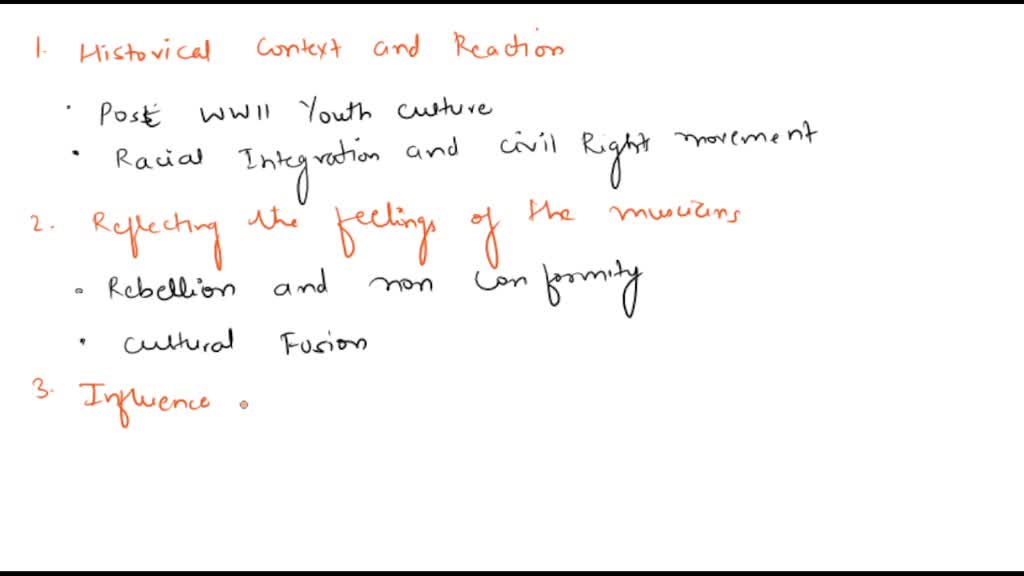 1. Historical Context and Reaction
• Post WWII Youth culture
• Racial Integration and civil Right movement
2. Reflecting the feelings of the musicians
• Rebellion and non conformity
• Cultural Fusion
3. Influence